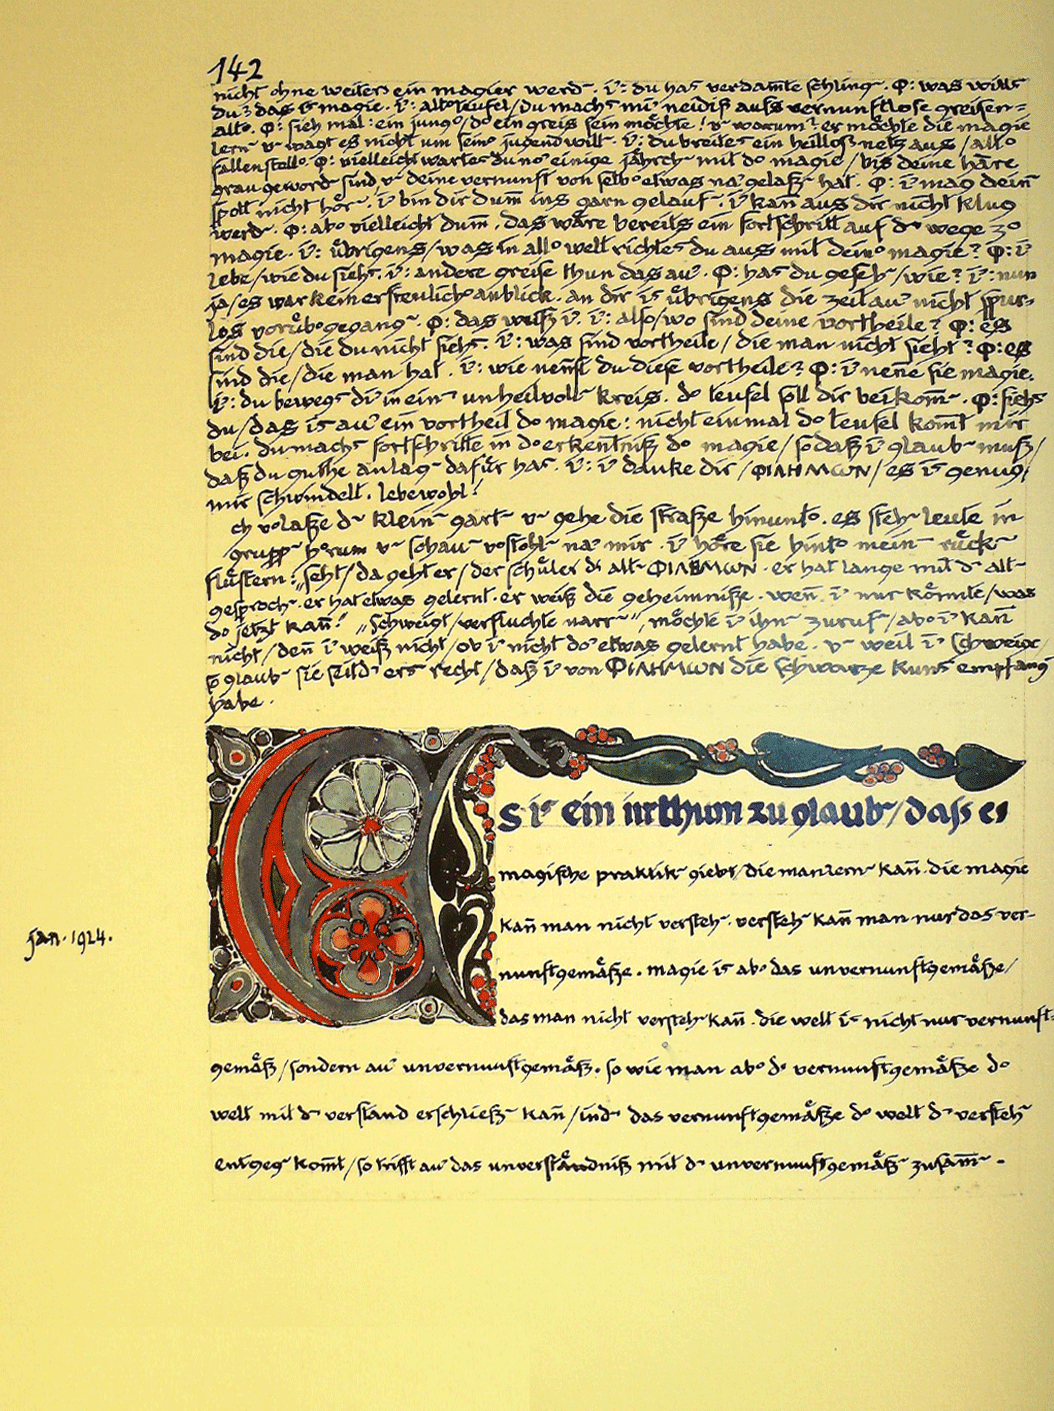 142
nicht ohne weiters ein magier werd‾. i‾: du has verdam̄te schling‾. Φ: was wills
du? das is magie. i‾: alt° teufel / du machs mi‾ neidiß aufs vernunftlose greisen=
alt°. Φ: sieh mal: ein jung° / d° ein greis sein möchte! u‾ warum? er möchte die magie
lern‾ u‾ wagt es nicht um sein° jugend will‾. i‾: du breites ein heilloß netz aus / alt°
fallenstell°. Φ: vielleicht wartes du no‾ einige jährch‾ mit d° magie / bis deine hāre
grau geword‾ sind u‾ deine vernunft von selb° etwas na‾ gelaß‾ hat. Φ: i‾ mag dein‾
spott nicht hör‾. i‾ bin dir dum̄ ins garn gelauf‾. i‾ kan̄ aus dir nicht klug
werd‾. Φ: ab° vielleicht dum̄. das wäre bereits ein fortschritt auf d‾ wege z°
magie. i‾: übrigens / was in all° welt richtes du aus mit dein° magie? Φ: i‾
lebe / wie du siehs. i‾: andere greise thun das au‾. Φ: has du geseh‾ / wie? i‾: nun
ja / es war kein erfreulich° anblick. an dir is übrigens die zeit au‾ nicht spur-
los vorüb°gegang‾. Φ: das weiß i‾. i‾: also / wo sind deine vortheile? Φ: es
sind die / die du nicht siehs. i‾: was sind vortheile / die man nicht sieht? Φ: es
sind die / die man hat. i‾: wie nen̄s du diese vortheile? Φ: i‾ nen̄e sie magie.
i‾: du bewegs di‾ in ein‾ unheilvoll‾ kreis. d° teufel soll dir beikom̄‾. Φ: siehs
du / das is au‾ ein vortheil d° magie: nicht einmal d° teufel kom̄t mir
bei. du machs fortschritte in d° erken̄tniß d° magie / sodaß i‾ glaub‾ muß /
daß du guthe anlag‾ dafür has. i‾: i‾ danke dir / ΦΙΛΗΜΩΝ / es is genug /
mir schwindelt. lebewohl!
ch v°laße d‾ klein‾ gart‾ u‾ gehe die straße hinunt°. es steh‾ leute in
grupp‾ h°rum u‾ schau‾ v°stohl‾ na‾ mir. i‾ höre sie hint° mein‾ rück‾
flüstern: „seht / da geht er / der schüler ds alt‾ ΦΙΛΗΜΩΝ. er hat lange mit d‾ alt‾
gesproch‾. er hat etwas gelernt. er weiß die geheimniße. wen̄ i‾ nur kön̄te / was
d° jetzt kan̄!" „Schweigt / verfluchte narr‾", möchte i‾ ihn‾ zuruf‾ / ab° i‾ kan̄
nicht / den̄ i‾ weiß nicht / ob i‾ nicht do‾ etwas gelernt habe. u‾ weil i‾ schweige /
so glaub‾ sie seitd° ers recht / daß i‾ von ΦΙΛΗΜΩΝ die schwarze kuns empfang‾
habe.
Es is ein irrthum zu glaub‾ / dass es
magische praktik‾ giebt / die man lern‾ kan̄. die magie
kan̄ man nicht versteh‾. versteh‾ kan̄ man nur das ver-
nunftgemäße. magie is ab° das unvernunftgemäße /
das man nicht versteh‾ kan̄. die welt is nicht nur vernunft-
gemäß / sondern au‾ unvernunftgemäß. so wie man ab° ds vernunftgemäße d°
welt mit d‾ verstand erschließ‾ kan̄ / ind‾ das vernunftgemäße d° welt d‾ versteh‾
entgeg‾ kom̄t / so trifft au‾ das unverständniß mit d‾ unvernunftgemäß‾ zusam̄‾.
jan. 1924.